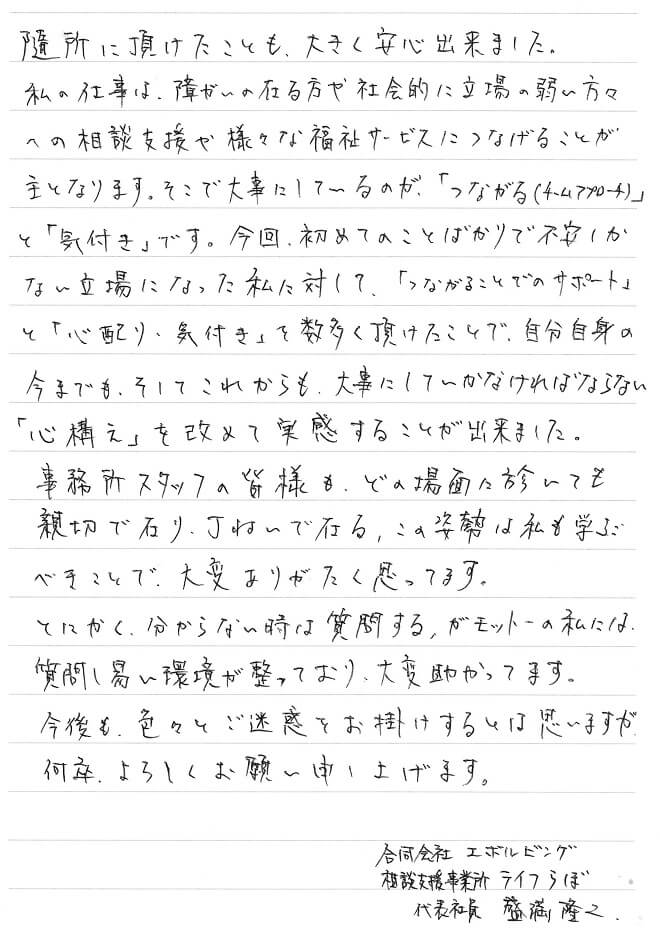 随所に頂けたことも、大きく安心出来ました。
私の仕事は、障がいの在る方や社会的に立場の弱い方々
への相談支援や様々な福祉サービスにつなげることが
主となります。そこで大事にしているのが、「つながる(チームアプローチ)」
と「気付き」です。今回、初めてのことばかりで不安しか
ない立場になった私に対して、「つながることでのサポート」
と「心配り・気付き」を数多く頂けたことで、自分自身の
今までも、そしてこれからも、大事にしていかなければならない
「心構え」を改めて実感することが出来ました。
事務所スタッフの皆様も、どの場面に於いても
親切で在り、丁ねいで在る、この姿勢は私も学ぶ
べきことで、大変ありがたく思ってます。
とにかく、分からない時は質問する、がモットーの私には、
質問し易い環境が整っており、大変助かってます。
今後も、色々とご迷惑をお掛けするとは思いますが、
何卒、よろしくお願い申し上げます。
合同会社 エボルビング
相談支援事業所 ライフらぼ
代表社員 盛満 隆之